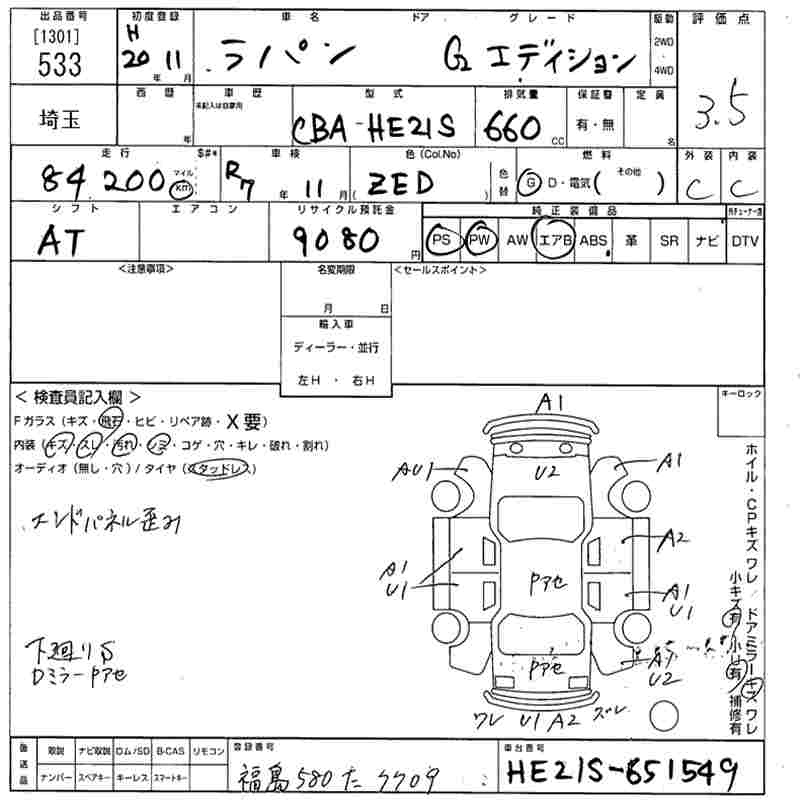 出品番号 初度登録 車名 ドア グレード 駆動 評価点
[1301]
533
H
20 11
年 月
ラパン G2 エディション
2WD
4WD
3.5
西暦 車歴 型式 排気量 保証書 定員
未記入は自家用
埼玉
年
CBA-HE21S 660 CC 有・無 名
走行 $#* 車検 色(Col.No) 燃料 外装 内装
84,200 マイル km
R7 年 11 月
( ZED )
色替
G D・電気( その他 )
C C
シフト エアコン リサイクル預託金 純正装備品
AT 9080 円
PS PW AW エアB ABS 革 SR ナビ DTV
<注意事項> 名変期限 <セールスポイント>
月 日
輸入車
ディーラー・並行
左H ・ 右H
< 検査員記入欄 >
キーロック
Fガラス (キズ・飛石・ヒビ・リペア跡・X要)
内装 (キズ・スレ・汚れ・シミ・コゲ・穴・キレ・破れ・割れ)
オーディオ (無し・穴) / タイヤ (スタッドレス)
エンドパネル歪み
下廻りS
Dミラー Pアセ
A1
AU1 U2 A1
A2
A1
U1
Pアセ
A1
U1
Pアセ
U2
ワレ U1 A2 ズレ
ホイル・CPキズ ワレ ドアミラーキズ ワレ
小キズ有 小U有 補修有
後送品 取説 ナビ取説 ロム/SD B-CAS リモコン
ナンバー スペアキー キーレス スマートキー
登録番号
福島 580 た 7709
車台番号
HE21S-851549